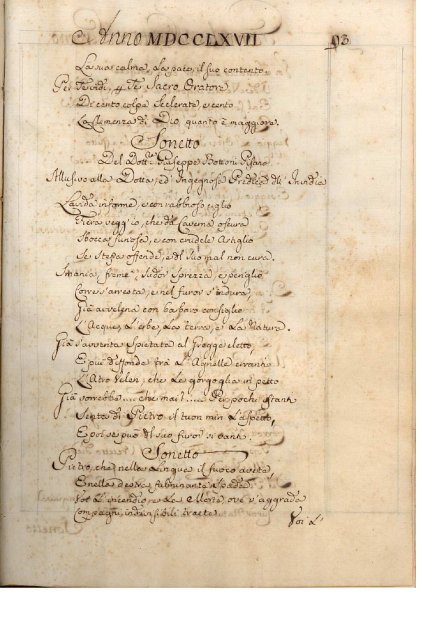 Anno MDCCLXVII
La sua calma, La pace, il suo contento,
Già per Te, Sacro Oratore
Di cento colpe Scelerate, e cento
La Clemenza di Dio, quanto è maggiore.
Sonetto
Del Dott. Giuseppe Bottoni Pisano
Allusivo alla Dotta, ed Ingegnosa Predica dell' Invidia
Livida informe, e con rabbioso ciglio
Fiera veggio, che da Caverna oscura
Sbocca furiosa, e con crudele Artiglio
Se stessa offende, e del suo mal non cura.
Smania, freme, e
Corre, s'arresta, e nel furor s'indura,
Già avvelena con barbaro consiglio
L'Acque, L'erbe, La terra, e La Natura.
Già s'avventa Spietata al Gregge eletto,
E più diffonde frà L'Agnelle erranti
L'Atro Velen, che Le gorgoglia in petto
Già vorrebbe.... che mai!.... Per pochi istanti
Senta di Pietro il tuon, miri L'aspetto,
E poi se può del suo furor si vanti.
Sonetto
Pietro, che nella Lingua il fuoco avete,
E nella destra fulminante Spada,
L'incendio, e La Morte, ov' v'aggrada
Compagni indivisibili traete.
Voi L'